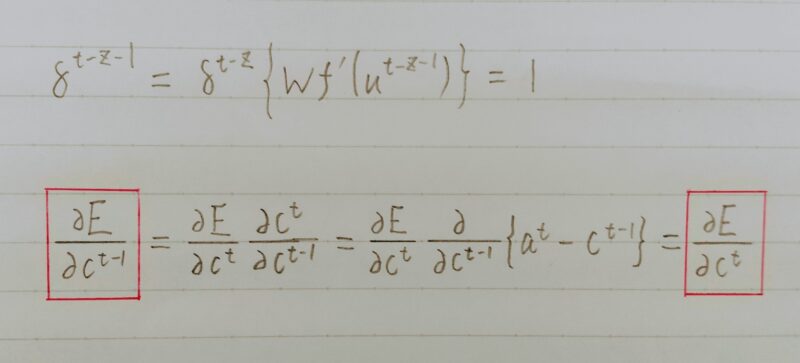 δ^{t-z-1} = δ^{t-z}{Wf'(u^{t-z-1})} = 1
∂E/∂c^{t-1} = ∂E/∂c^t ∂c^t/∂c^{t-1} = ∂E/∂c^t ∂/∂c^{t-1}{a^t - c^{t-1}} = ∂E/∂c^t